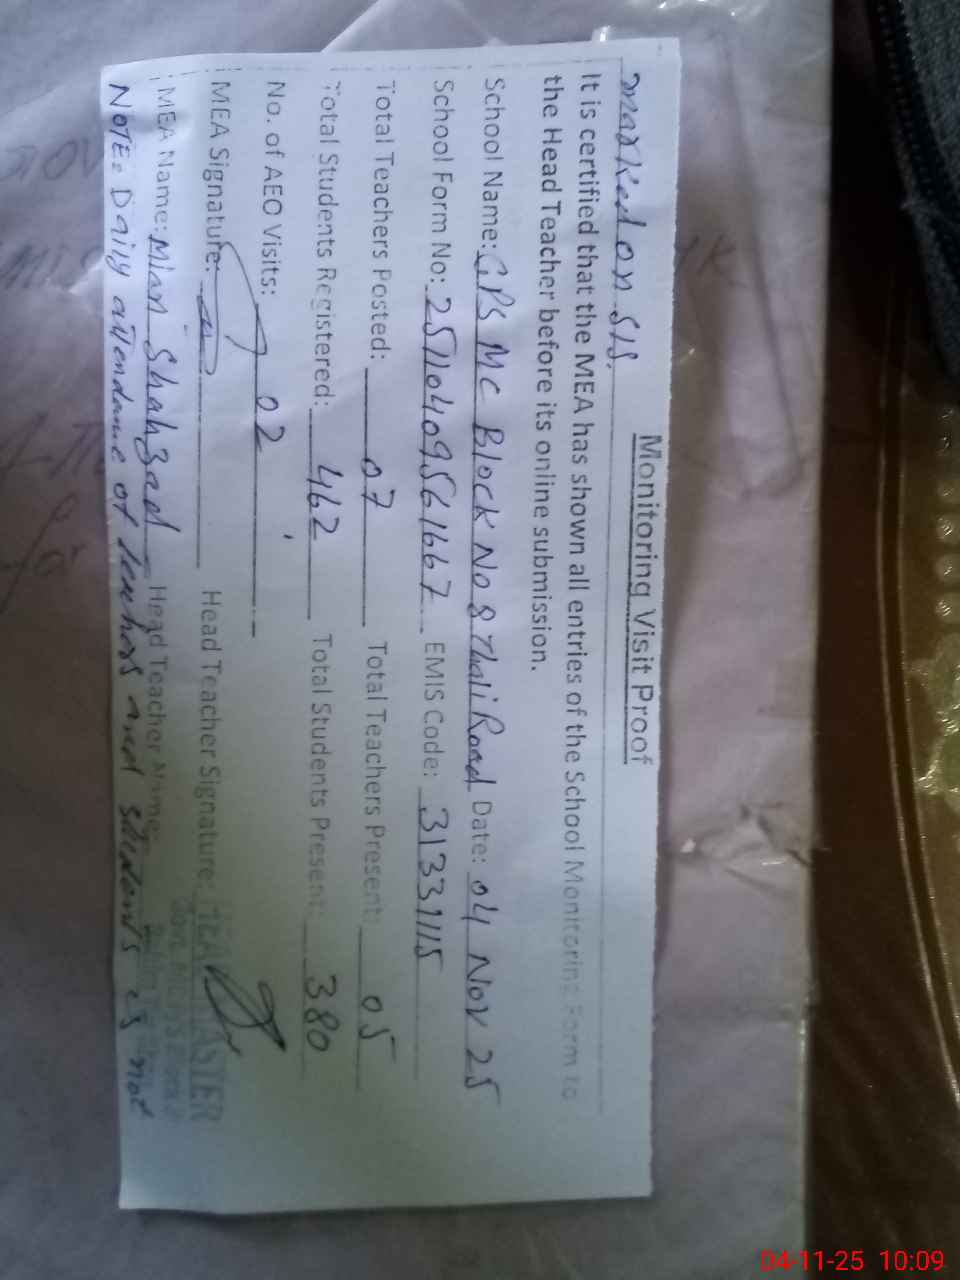 Monitoring Visit Proof
marked on SIS.
It is certified that the MEA has shown all entries of the School Monitoring Form to
the Head Teacher before its online submission.
School Name: GPS MC Block No 8 Thali Road Date: 04 Nov 25
School Form No: 25110409561667 EMIS Code: 31331115
Total Teachers Posted: 07 Total Teachers Present: 05
Total Students Registered: 462 Total Students Present: 380
No. of AEO Visits: 02
MEA Signature: Head Teacher Signature:
MEA Name: Mian Shahzad Head Teacher Name:
NOTE: Daily attendance of teachers and students is not
04-11-25 10:09